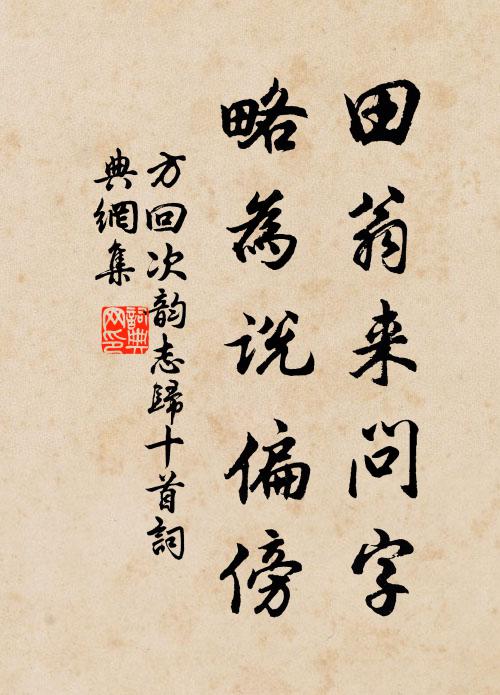 田翁来问字
略為说偏傍
方回次韵志歸十首詞
典網集
詞典
网印